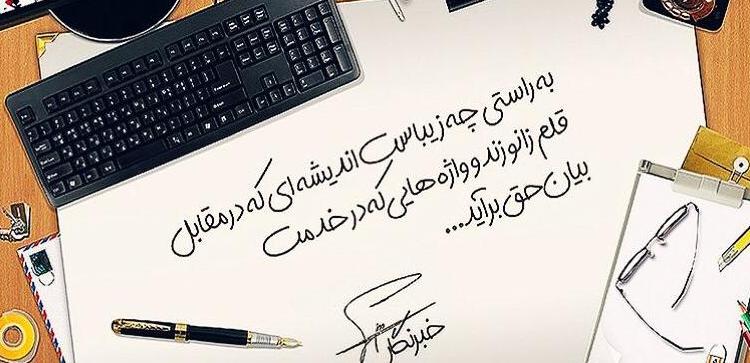 به راستی چه زیباست اندیشه ای که در مقابل
قلم زانو زند و واژه هایی که در خدمت
بیان حق برآید...
خبرنگار